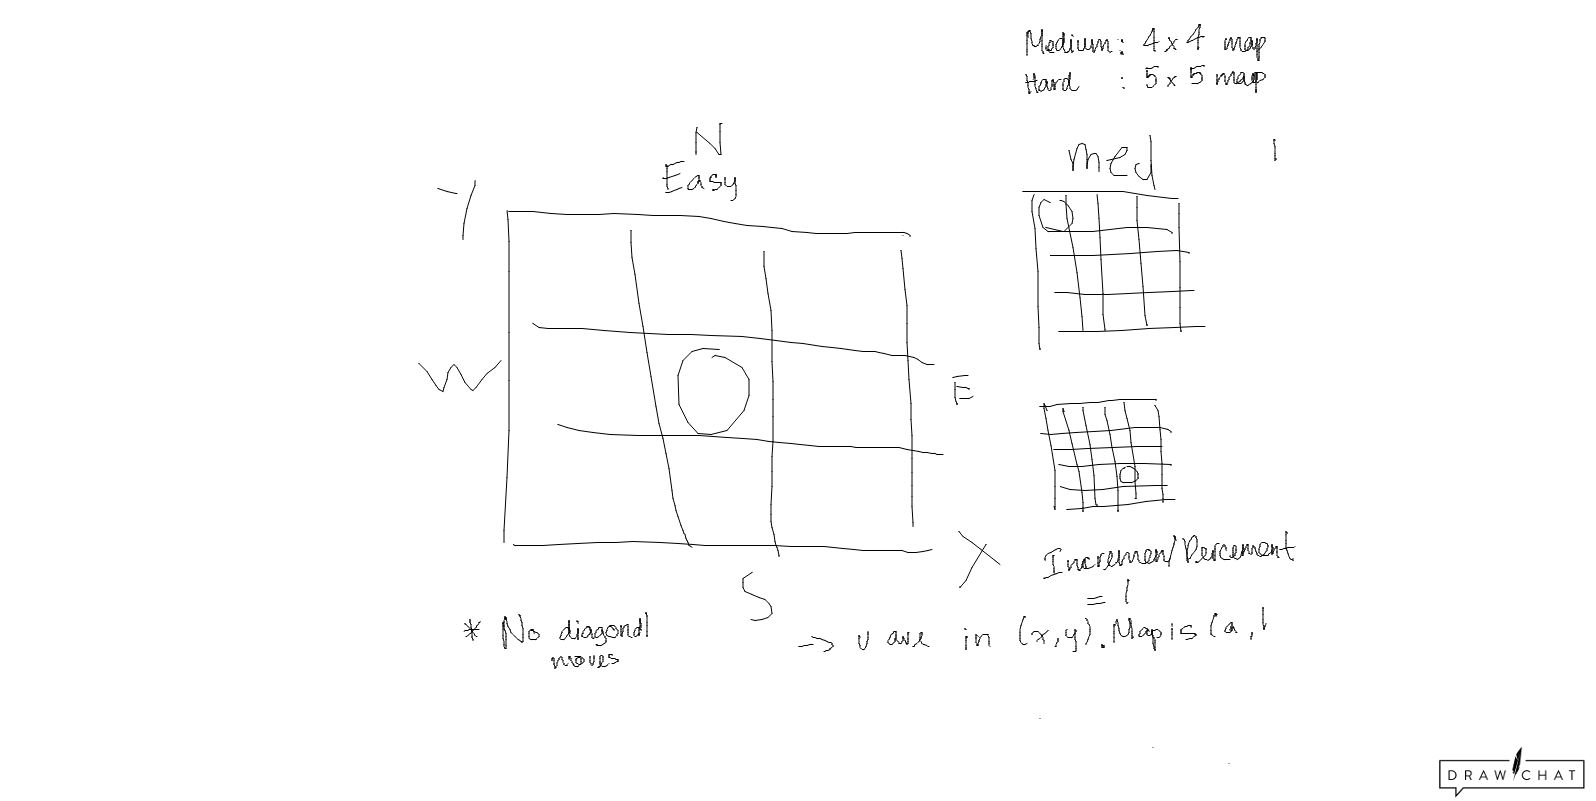 Medium: 4x4 map
Hard : 5x5 map
N
Easy
med
Y
W
E
X
S
Incremen/Dercement
= 1
* No diagonal
moves
-> u are in (x,y). Map is (a,
DRAW CHAT